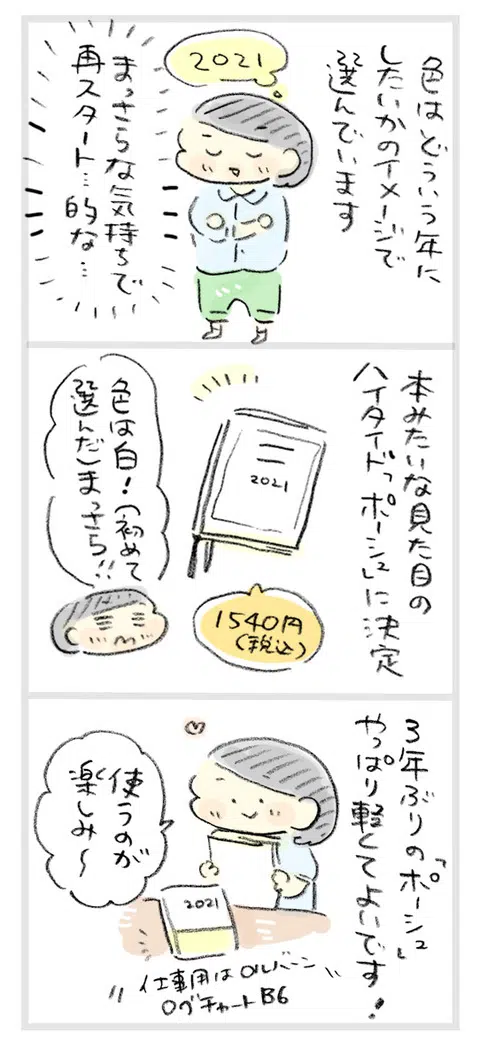 色はどういう年に
したいかのイメージで
選んでいます
2021
まっさらな気持ちで
再スタート…的な…
本みたいな見た目の
ハイタイド「ポーシュ」に決定
2021
1540円
(税込)
色は白！(初めて
選んだ)まっさら!!
3年ぶりの「ポーシュ」
やっぱり軽くてよいです！
使うのが
楽しみ〜
2021
仕事用はロルバーン
ログチャートB6